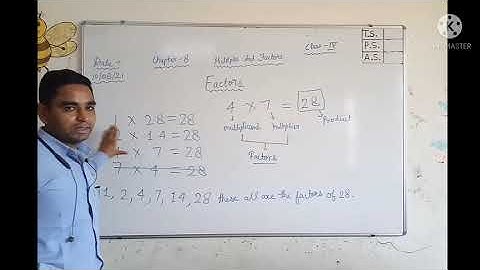 Date →
10/08/21
Chapter - 8
Multiples and Factors
Class - IV
T.S.
P.S.
A.S.
Factors
4 × 7 = 28
multiplicand
multiplier
product
Factors
1 × 28 = 28
× 14 = 28
× 7 = 28
7 × 4 = 28
1, 2, 4, 7, 14, 28 these all are the factors of 28.